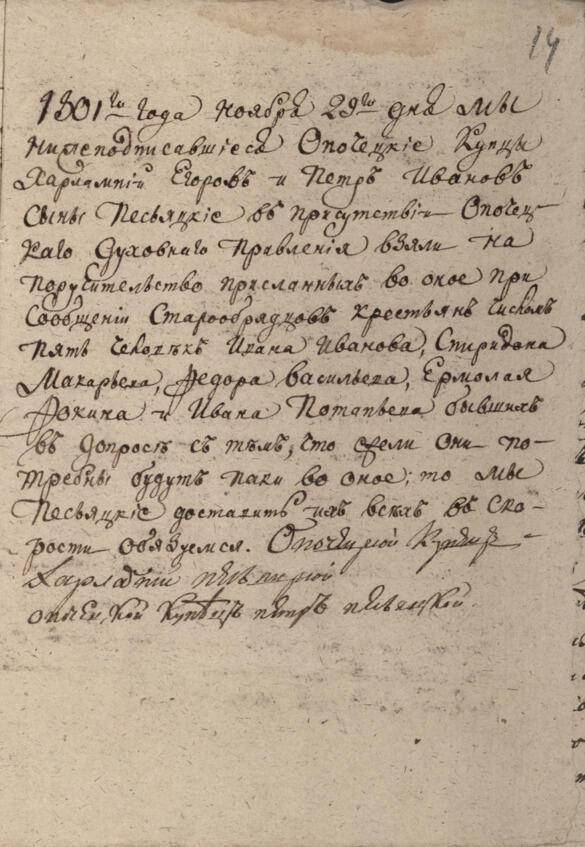 14
1801го года ноября 29го дня мы
нижеподписавшіеся Опочецкіе Купцы
Харлампій Егоровъ и Петръ Ивановъ
сыны Песьяцкіе въ присутствіи Опочец
каго Духовнаго Правленія взяли на
поручительство присланныхъ во оное при
Сообщеніи Старообрядцовъ крестьянъ числомъ
пять человѣкъ Ивана Иванова, Спиридона
Макарьева, Федора Васильева, Ермолая
Фокина и Ивана Потапьева бывшихъ
въ допросѣ съ тѣмъ, что если они по-
требны будутъ паки во оное; то мы
Песьяцкіе доставить ихъ всѣхъ въ ско-
рости обязуемся. Опочецкой Купецъ
Харлампій песьяцкой
опочецкой купецъ петръ песьяцкой.